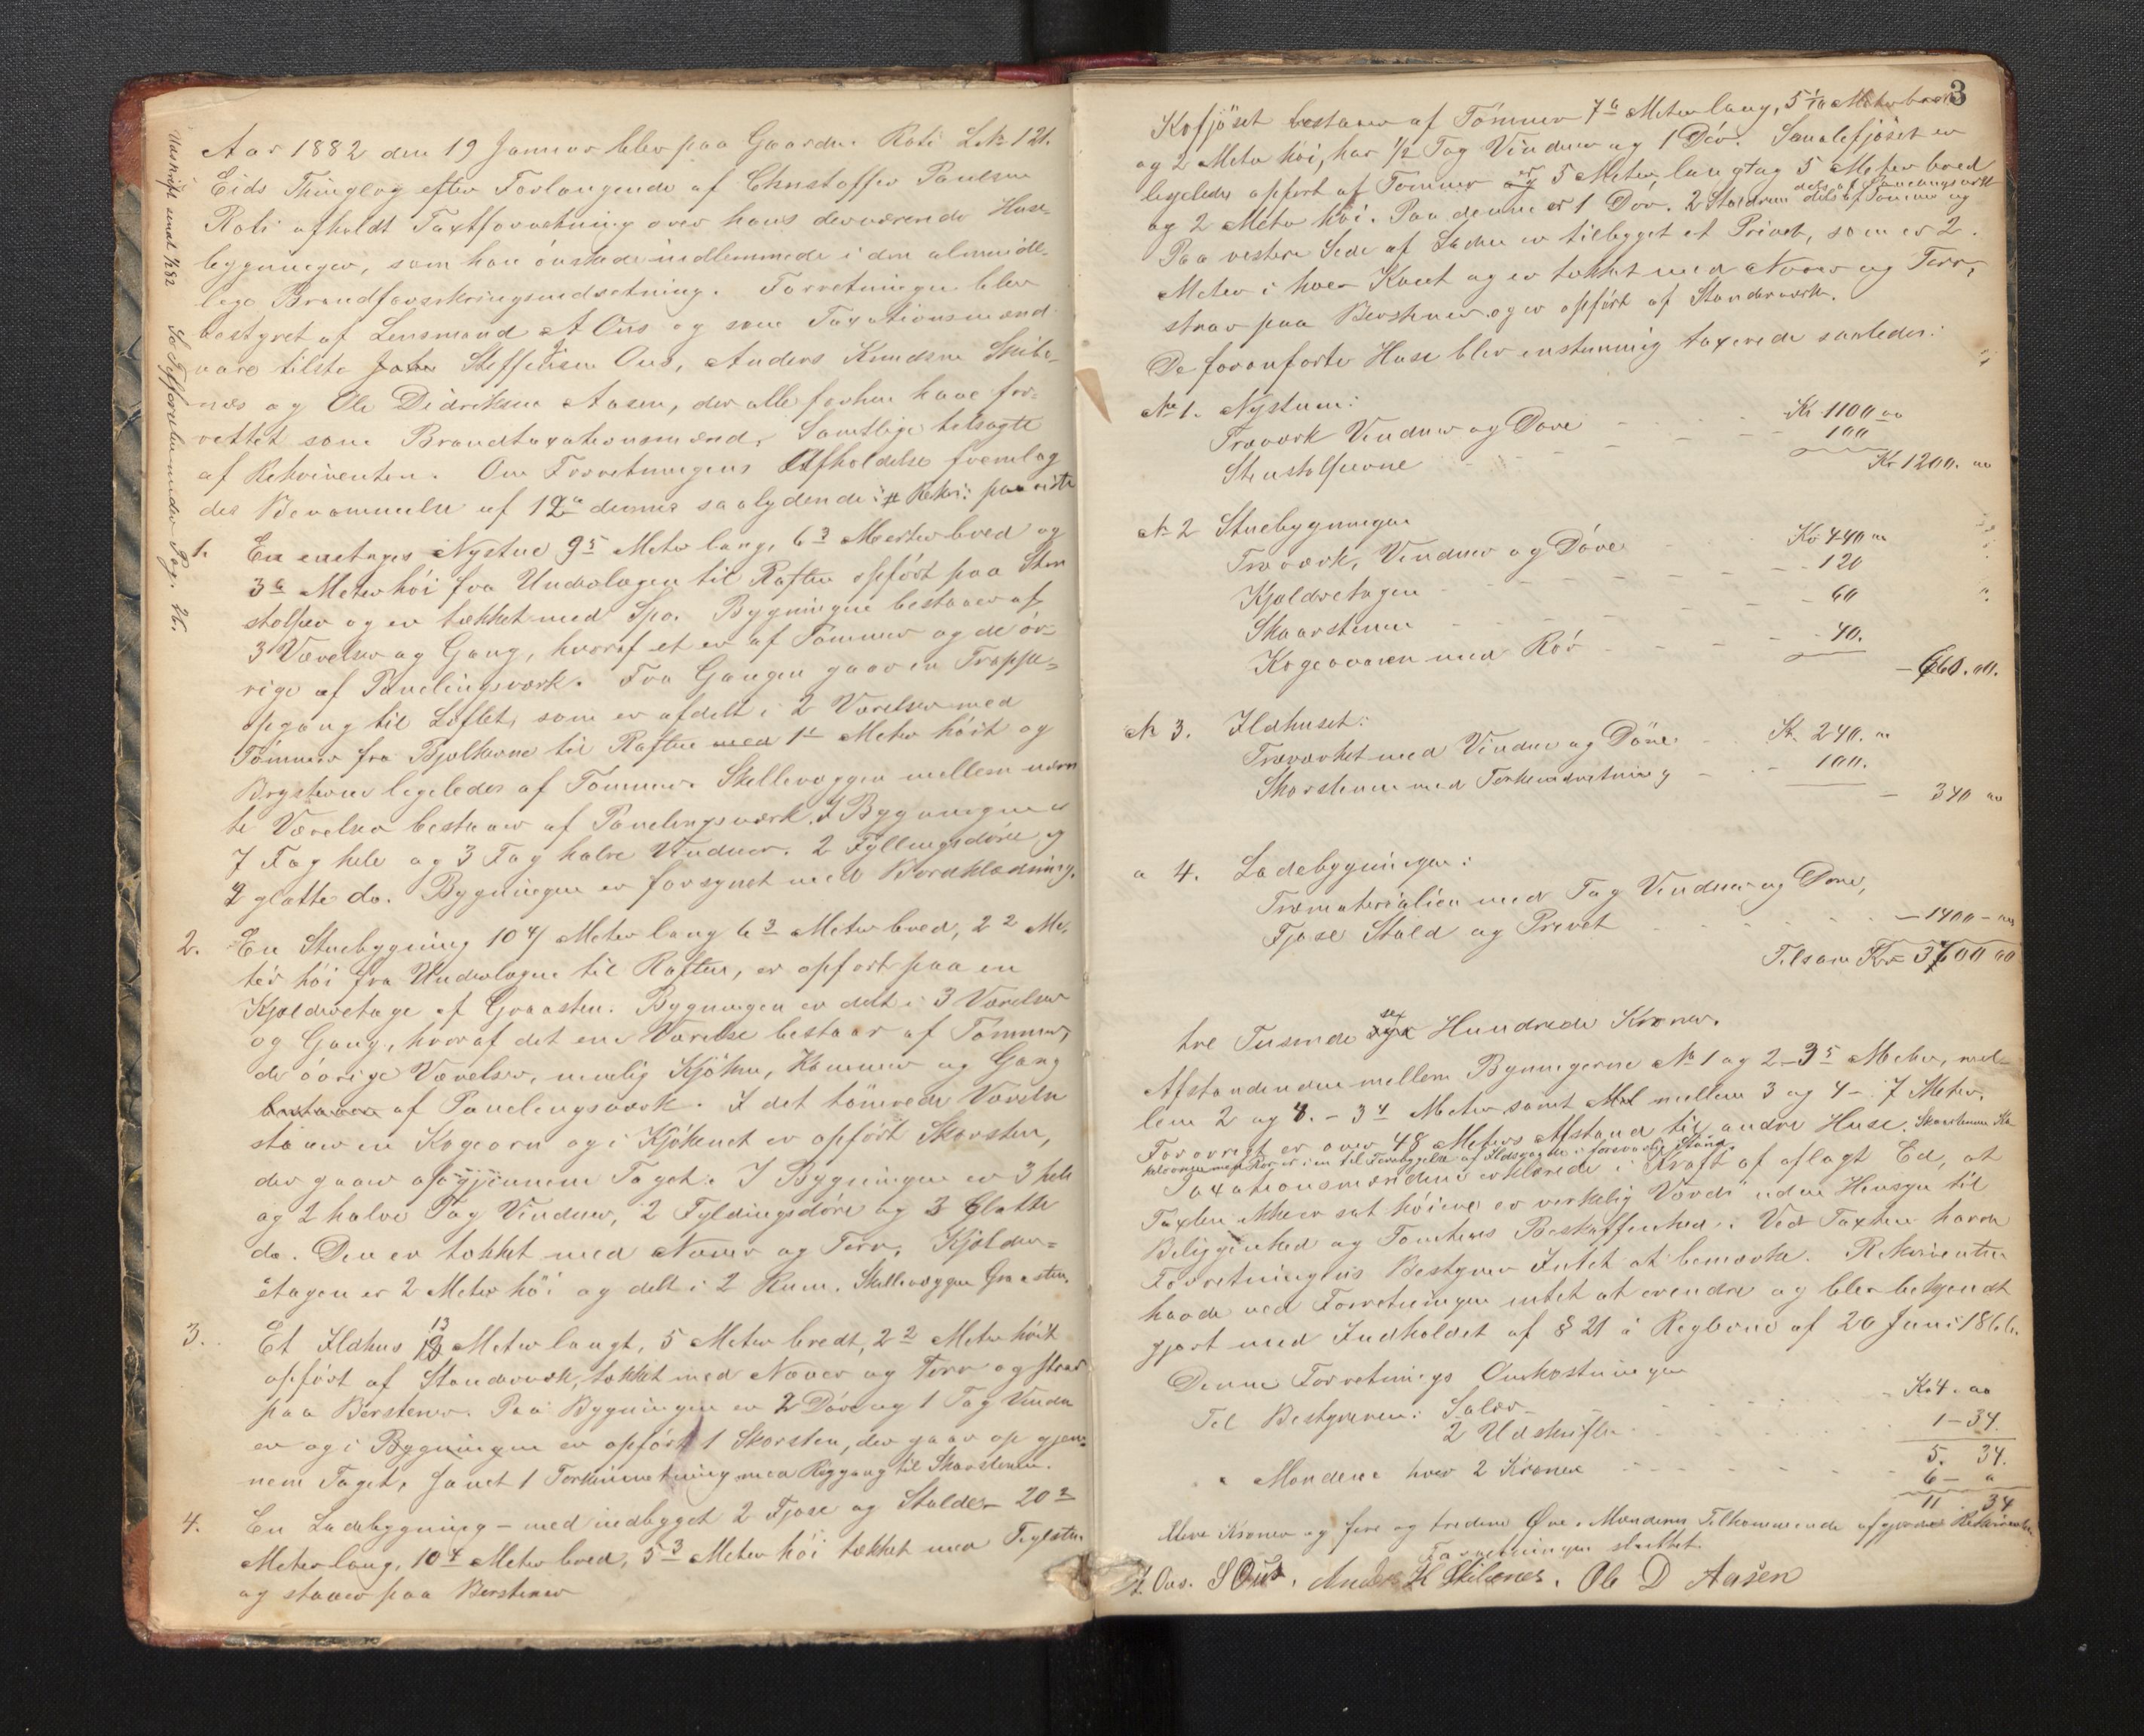 Udskrift sendt 1/2 82 Se Tefforretn under Pag. 26.
Aar 1882 den 19 Januar blev paa Gaarden Roti L.No 121.
Eids Thinglag efter Forlangende af Christoffer Paulsen
Roti afholdt Taxtforretning over hans derværende Huse-
bygninger, som han ønskede indlemmede i den alminde-
lige Brandforsikringsindretning. Forretningen blev
bestyret af Lensmand A Ous og som Taxationsmænd
vare tilsta Steffensen Ous, Anders Knudsen Skibe-
næs og Ole Didriksen Aasen, der alle forhen have for-
rettet som Brandtaxationsmænd. Samtlige tilsagte
af Rekvirenten. Om Forretningens Afholdelse fremlag
des Berammelse af 12te dennes saalydende: # Rekv: paaviste
1. En enetages Nystue 9 5 Meter lang, 6 3 Meter bred og
3 Meter høi fra Undralagen til Raften opført paa Sten
stolper og er tækket med Spo. Bygningen bestaaer af
3 Værelser og Gang, hvoraf et er af Tømmer og de øv-
rige af Panelingsværk. Fra Gangen gaar en Trappe-
opgang til Loftet, som er afdelt i 2 Værelser med
Tømmer fra Bjelkerne til Raften med 1 Meter høit og
Brysterne ligeledes af Tømmer. Skillevæggen mellem nævn
te Værelser bestaaer af Panelingsværk. I Bygningen er
7 Fag hele og 3 Fag halve Vinduer. 2 Fyllingsdøre og
2 glatte do. Bygningen er forsynet med Bordklædning.
2. En Stuebygning 10 4 Meter lang 6 3 Meter bred, 2 2 Me-
ter høi fra Undralagen til Raften, er opført paa en
Kjelderetage af Graasten. Bygningen er delt i 3 Værelser
og Gang, hvoraf det ene Værelse bestaar af Tømmer,
de øvrige Værelser, nemlig Kjøken, Kammer og Gang
bestaaer af Panelingsværk. I det tømrede Værelse
staaer en Kogeovn og i Kjøkenet er opført Skorsten,
der gaaer op gjennem Taget. I Bygningen er 3 hele
og 2 halve Fag Vinduer, 2 Fyldingsdøre og 3 Glatte
do. Den er tækket med Næver og Torv. Kjelder-
etagen er 2 Meter høi og delt i 2 Rum. Skillevæggen Graasten.
3. Et Ildhus 13 Meter langt, 5 Meter bredt, 2 2 Meter høit
opført af Standværk, tækket med Næver og Torv og straar
paa Berstener. Paa Bygningen er 2 Døre og 1 Fag Vindu
er og i Bygningen er opført 1 Skorsten, der gaar op gjen-
nem Taget, samt 1 Torkeindretning med Røggang til Skorstenen.
4. En Ladebygning – med indbygget 2 Fjøse og Stalder 20 2
Meter lang, 10 4 Meter bred, 5 3 Meter høi tækket med Teglsten
og staaer paa Berstener
3
Kofjøset bestaaer af Tømmer 7 Meter lang, 5 1/10 Meter bred
og 2 Meter høi, har 1/2 Fag Vinduer og 1 Dør. Smalefjøset er
ligeledes opført af Tømmer er 5 Meter, langt og 5 Meter bred
og 2 Meter høi. Paa denne er 1 Dør. 2 Staldrum dels af Tømmer og
dels af Panelingsværk
Paa vestre Side af Laden er tilbygget et Privet, som er 2.
Meter i hver Kant og er tækket med Næver og Torv,
straar paa Berstener og er opført af Standerværk.
De foranførte Huse blev enstemmig taxerede saaledes:
No 1. Nystuen:
Træværk Vinduer og Døre Kr 1100 00
Stenstolperne 100
Kr 1200. 00
No 2 Stuebygningen
Træværk, Vinduer og Døre Kr 440 00
Kjelderetagen 120
Skaarstenen 60
Kogeovnen med Rør 40.
– 660. 00.
No 3. Ildhuset:
Træværket med Vinduer og Døre Kr. 240. 00
Skorstenen med Torkeindretning 100.
– 340 00
" 4. Ladebygningen:
Træmaterialier med Tag Vinduer og Døre,
Fjøse Stald og Privet – 1400 – 00
Tilsam Kr 3600 00
tre Tusinde sex Hundrede Kroner.
Afstanden er mellem Bygningerne No 1 og 2 – 3 5 Meter, mel-
lem 2 og 3. – 3 4 Meter samt mellem 3 og 4 – 7 Meter.
Forøvrigt er over 48 Meters Afstand til andre Huse. Skorstenen Ka-
kelovnen med Rør er i en til Forebyggelse af Ildsvaade i forsvarlig Stand.
Taxationsmændene erklærede i Kraft af aflagt Ed, at
Taxten ikke er sat høiere er virkelig Værdi uden Hensyn til
Beliggenhed og Tomtens Beskaffenhed. Ved Taxten havde
Forretningens Bestyrer Intet at bemærke. Rekvirenten
havde ved Forretningen intet at erindre og blev bekjendt
gjort med Indholdet af § 21 i Reglerne af 20 Juni 1866.
Denne Forretnings Omkostninger
Til Bestyreren: Salær Kr 4. 00
2 Udskrifter 1 – 34.
5. 34.
" Mændene hver 2 Kroner 6 – "
11. 34
Elleve Kroner og fire og tredive Øre. Mændenes Tilkommende afgjorde Rekvirenten
Forretningen sluttet.
A. Ous. S Ous. Anders K Skibenes. Ole D Aasen